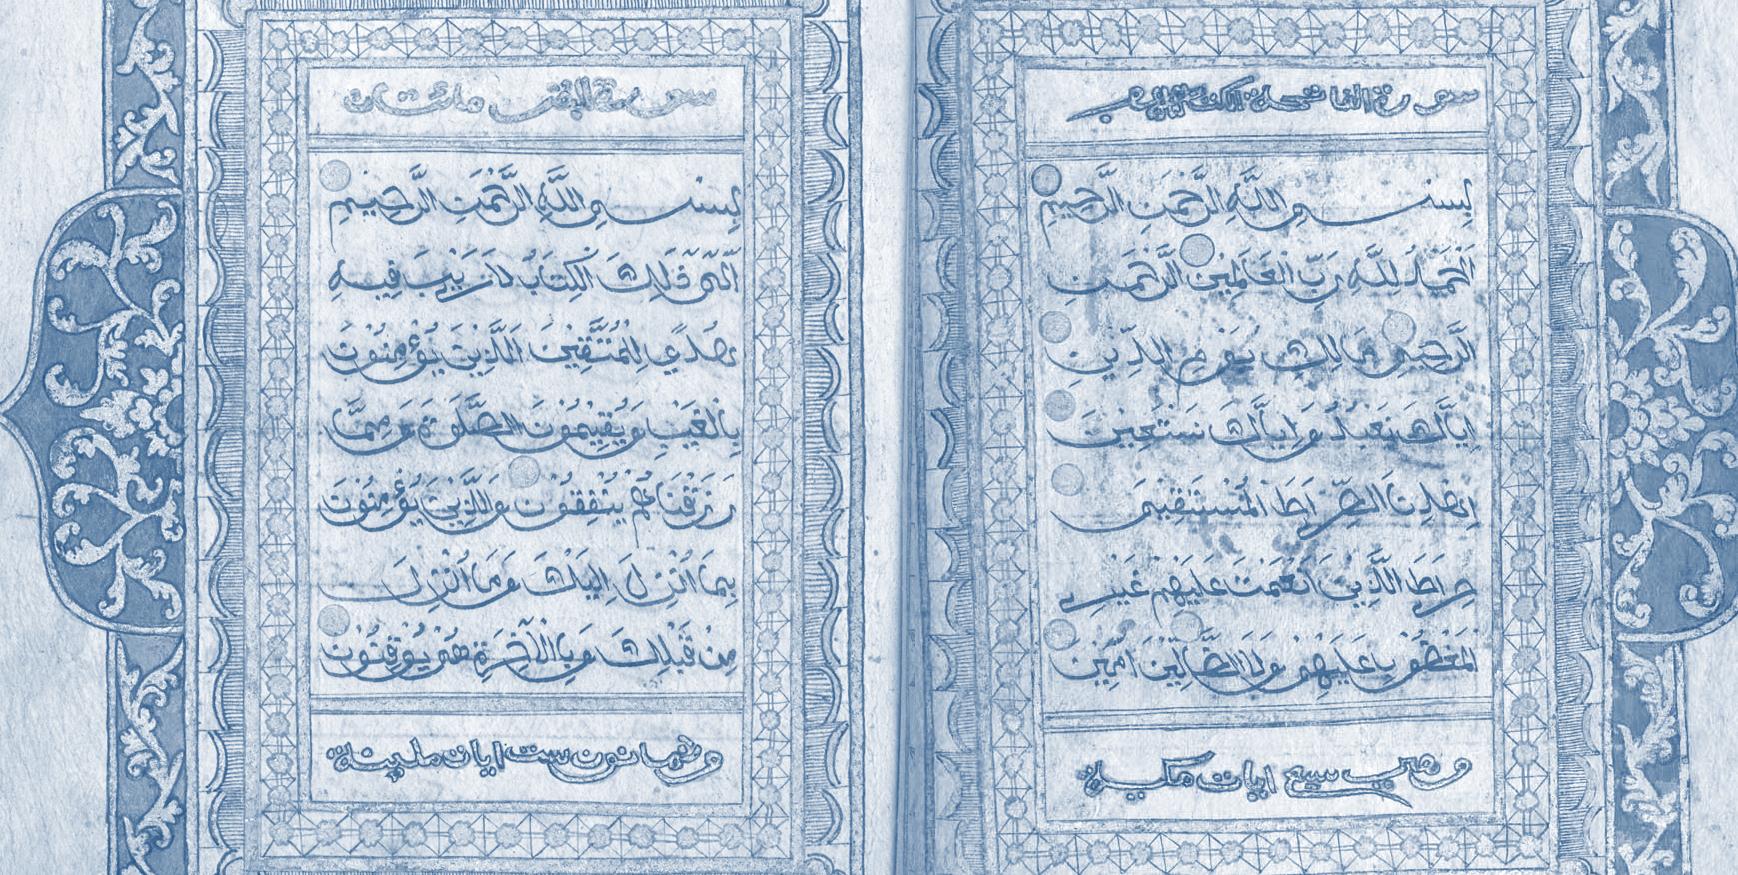 سورة الفاتحة الكتاب
بِسْمِ اللَّهِ الرَّحْمَٰنِ الرَّحِيمِ
اَلْحَمْدُ لِلَّهِ رَبِّ الْعَالَمِينَ الرَّحْمَٰنِ
الرَّحِيمِ مَالِكِ يَوْمِ الدِّينِ
اِيَّاكَ نَعْبُدُ وَاِيَّاكَ نَسْتَعِينُ
اِهْدِنَا الصِّرَاطَ الْمُسْتَقِيمَ
صِرَاطَ الَّذِينَ اَنْعَمْتَ عَلَيْهِمْ غَيْرِ
الْمَغْضُوبِ عَلَيْهِمْ وَلَا الضَّالِّينَ اٰمِينَ
وهي سبع ايات مكية
سورة البقرة مائتان
بِسْمِ اللَّهِ الرَّحْمَٰنِ الرَّحِيمِ
الٓمٓ ذَٰلِكَ الْكِتَابُ لَا رَيْبَ فِيهِ
هُدًى لِلْمُتَّقِينَ الَّذِينَ يُؤْمِنُونَ
بِالْغَيْبِ وَيُقِيمُونَ الصَّلَوٰةَ وَمِمَّا
رَزَقْنَاهُمْ يُنْفِقُونَ وَالَّذِينَ يُؤْمِنُونَ
بِمَا اُنْزِلَ اِلَيْكَ وَمَا اُنْزِلَ
مِنْ قَبْلِكَ وَبِالْاٰخِرَةِ هُمْ يُوقِنُونَ
وثمانون ست ايات مدينة